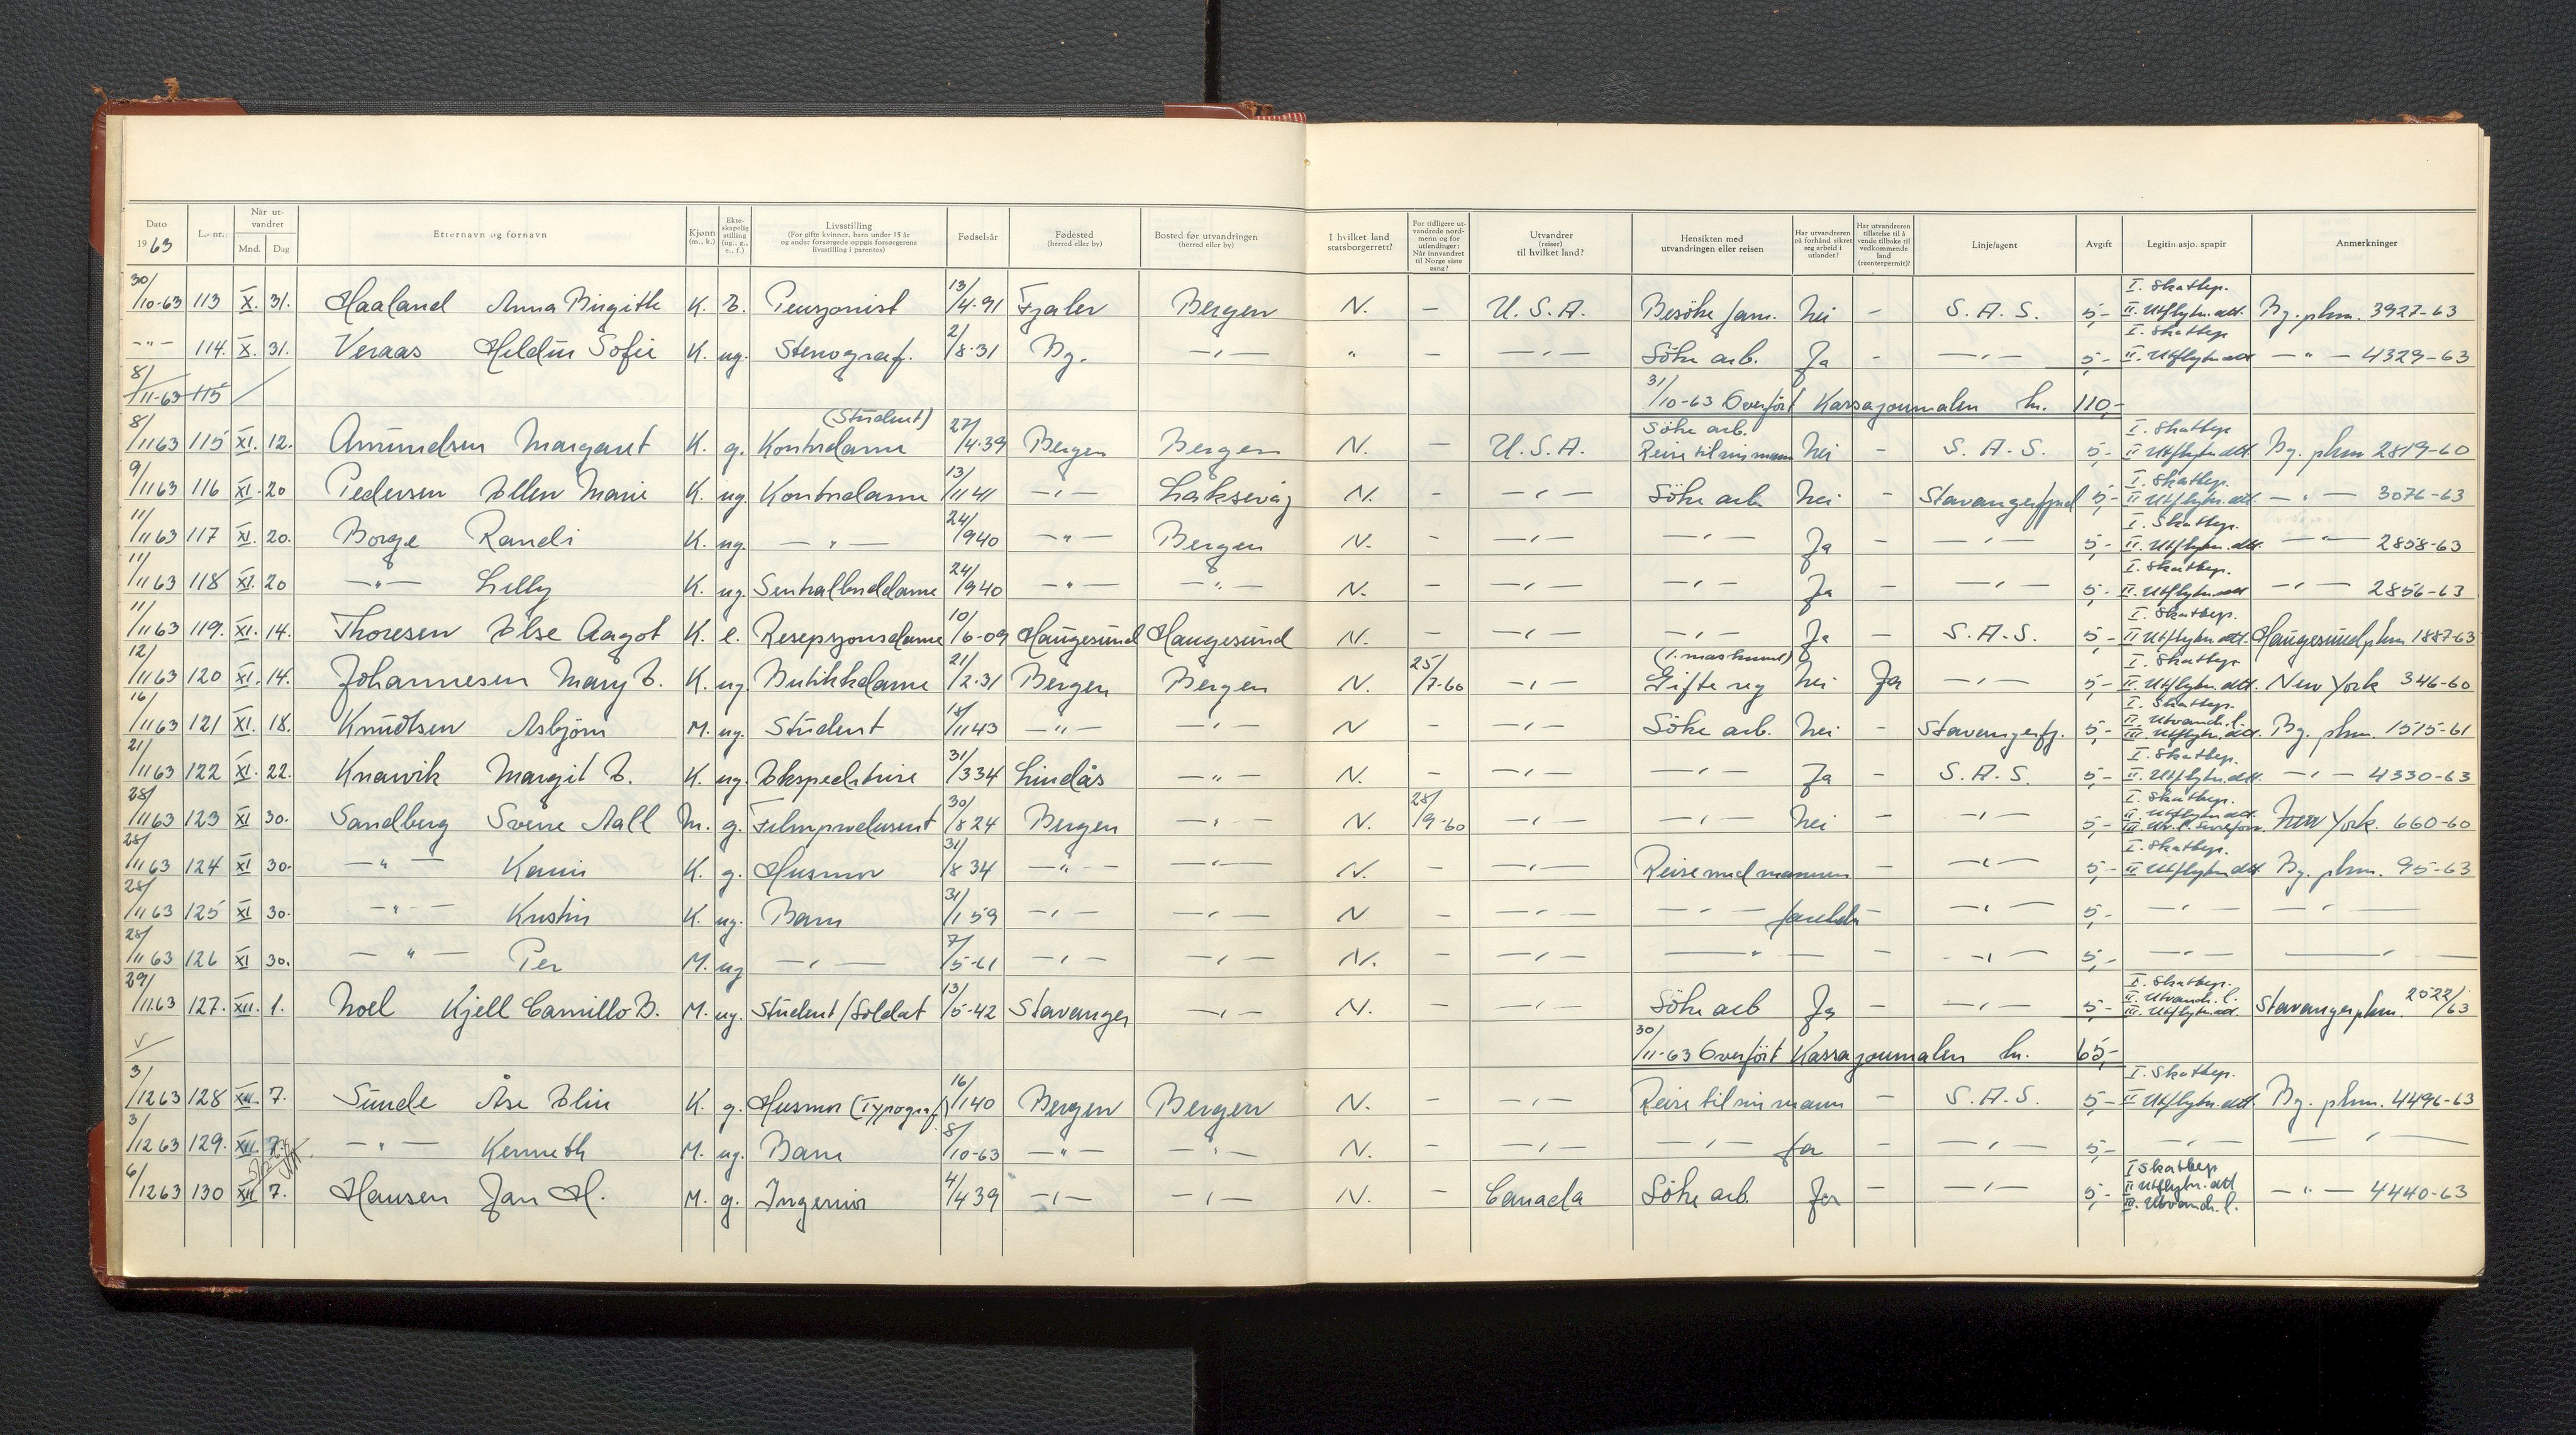 Dato 1963 | L.nr. | Når utvandret Mnd. Dag | Etternavn og fornavn | Kjønn (m., k.) | Ekteskapelig stilling (ug., g., e., f.) | Livsstilling (For gifte kvinner, barn under 15 år og andre forsørgede oppgis forsørgerens livsstilling i parentes) | Fødselsår | Fødested (herred eller by) | Bosted før utvandringen (herred eller by) | I hvilket land statsborgerrett? | For tidligere utvandrede nordmenn og for utlendinger: Når innvandret til Norge siste gang? | Utvandrer (reiser) til hvilket land? | Hensikten med utvandringen eller reisen | Har utvandreren på forhånd sikret seg arbeid i utlandet? | Har utvandreren tillatelse til å vende tilbake til vedkommende land (reenterpermit)? | Linje/agent | Avgift | Legitimasjonspapir | Anmerkninger
30/10-63 | 113 | X. | 31. | Haaland Anna Birgitte | K. | E. | Pensjonist | 13/4-91 | Fjaler | Bergen | N. | - | U.S.A. | Besöke fam. | Nei | - | S.A.S. | 5,- | I. Skattep. II. Utflytn.att. | Bg. pkm. 3927-63
-"- | 114. | X. | 31. | Veraas Hildur Sofie | K. | ug. | Stenograf. | 2/8-31 | Bg. | -"- | " | - | -"- | Söke arb. | Ja | - | -"- | 5,- | I. Skattep II. Utflytn.att | -"- 4329-63
8/11-63 | 115 | 31/10-63 Overført Kassajournalen kr. 110,-
8/11 63 | 115 | XI. | 12. | Amundsen Margaret | K. | g. | Kontordame (Student) | 27/4-39 | Bergen | Bergen | N. | - | U.S.A. | Söke arb. Reise til sin mann | Nei | - | S.A.S. | 5,- | I. Skattep II. Utflytn.att. | Bg. pkm 2819-60
9/11 63 | 116 | XI. | 20 | Pedersen Ellen Marie | K. | ug. | Kontordame | 13/11 41 | -"- | Laksevåg | N. | - | -"- | Söke arb. | Nei | - | Stavangerfjord | 5,- | I. Skattep. II. Utflytn.att. | -"- 3076-63
11/11 63 | 117 | XI. | 20. | Borge Randi | K. | ug. | -"- | 24/9 40 | -"- | Bergen | N. | - | -"- | -"- | Ja | - | -"- | 5,- | I. Skattep. II. Utflytn.att. | -"- 2858-63
11/11 63 | 118 | XI. | 20 | -"- Lilly | K. | ug. | Sentralborddame | 24/9 40 | -"- | -"- | N. | - | -"- | -"- | Ja | - | -"- | 5,- | I. Skattep. II. Utflytn.att | -"- 2856-63
11/11 63 | 119. | XI. | 14. | Thoresen Else Aagot | K. | e. | Resepsjonsdame | 10/6-09 | Haugesund | Haugesund | N. | - | -"- | -"- | Ja | - | S.A.S. | 5,- | I. Skattep. II. Utflytn.att. | Haugesund pkm 1887-63
12/11 63 | 120 | XI. | 14. | Johannesen Mary E. | K. | ug | Butikkdame | 21/2-31 | Bergen | Bergen | N. | 25/7-60 | -"- | Gifte seg | Nei | Ja | -"- | 5,- | I. Skattep II. Utflytn.att. | New York 346-60
16/11 63 | 121 | XI. | 18. | Knudtsen Asbjørn | M. | ug. | Student | /11 43 | -"- | -"- | N | - | -"- | Söke arb. | Nei | - | Stavangerfj. | 5,- | I. Skattep. II. Utvandr.l. III. Utflytn.att. | Bg. pkm. 1515-61
21/11 63 | 122 | XI. | 22. | Knarvik Margit E. | K. | ug. | Ekspeditrise | 31/3 34 | Lindås | -"- | N. | - | -"- | -"- | Ja | - | S.A.S. | 5,- | I. Skattep. II. Utflytn.att. | -"- 4330-63
28/11 63 | 123 | XI | 30. | Sandberg Sverre Aall | M. | g. | Filmprodusent | 30/8 24 | Bergen | -"- | N. | 28/9-60 | -"- | -"- | Nei | - | -"- | 5,- | I. Skattep. II. Utflytn.att. | New York. 660-60
28/11 63 | 124 | XI | 30. | -"- Karin | K. | g. | Husmor | 31/8 34 | -"- | -"- | N. | - | -"- | Reise med mannen | - | -"- | 5,- | I. Skattep. II Utflytn.att. | Bg. pkm. 95-63
28/11 63 | 125 | XI | 30. | -"- Kristin | K. | ug. | Barn | 31/1 59 | -"- | -"- | N | - | -"- | -"- foreldre | - | -"- | 5,- | -"- | -"-
28/11 63 | 126 | XI | 30. | -"- Per | M. | ug | -"- | 7/5-61 | -"- | -"- | N. | - | -"- | -"- | - | -"- | 5,- | -"- | -"-
29/11.63 | 127. | XII. | 1. | Noel Kjell Camillo B. | M. | ug. | Student/Soldat | 13/5-42 | Stavanger | -"- | N. | - | -"- | Söke arb | Ja | - | -"- | 5,- | I. Skattep. II. Utvandr.l. III. Utflytn.att. | Stavanger pkm. 2522/63
30/11-63 Overført Kassajournalen kr. 65,-
3/12 63 | 128 | XII. | 7. | Sunde Åse Elin | K. | g. | Husmor (Typograf) | 16/1 40 | Bergen | Bergen | N. | - | -"- | Reise til sin mann | - | S.A.S. | 5,- | I. Skattep. II Utflytn.att. | Bg. pkm. 4496-63
3/12 63 | 129. | XII. | 7. | -"- Kenneth | M. | ug. | Barn | 8/10-63 | -"- | -"- | N. | - | -"- | -"- far | - | -"- | 5,- | -"- | -"-
6/12 63 | 130 | XII | 7. | Hansen Jan H. | M. | g. | Ingeniør | 4/4 39 | -"- | -"- | N. | - | Canada | Söke arb. | Ja | - | -"- | 5,- | I Skattep II Utflytn.att III. Utvandr.l. | -"- 4440-63